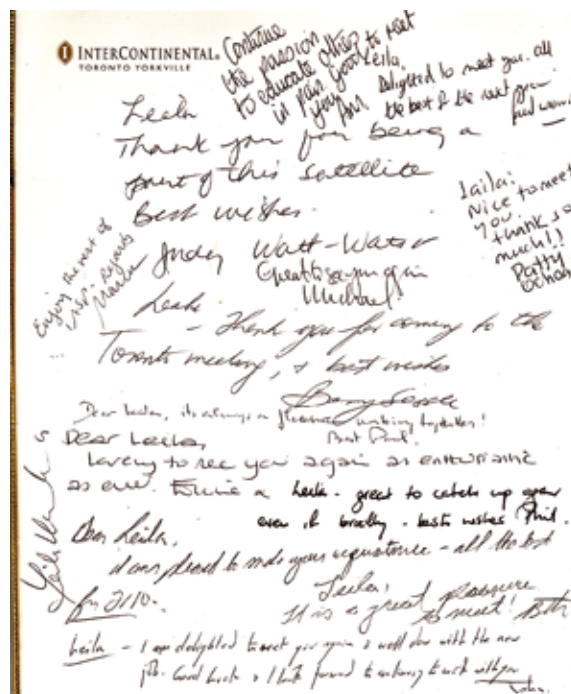 INTERCONTINENTAL.
TORONTO YORKVILLE
Continue
the passion
to educate others
in pain good to meet
you
Leila,
Delighted to meet you. all
the best for the next
Leila
Thank you for being a
part of this satellite
Best wishes.
Judy Watt-Watson
Great to see you again
Michael!
Laila:
Nice to meet
you.
thank so
much!!
Patty
Enjoy the rest of
visit. regards
Leila
- Thank you for coming to the
Toronto meeting, & best wishes
Barry Sessle
Dear Leila, its always a pleasure working together!
Best Paul.
Dear Leila,
Lovely to see you again as enthusiastic
as ever.
Leila - great to catch up again
even if briefly - best wishes Phil.
Dear Leila,
pleased to make your acquaintance - all the best
for 2110.
Leila!
It is a great pleasure
to meet! Beth
Leila - I am delighted to meet you again & well done with the new
job. Good luck & I look forward to continuing to work with you